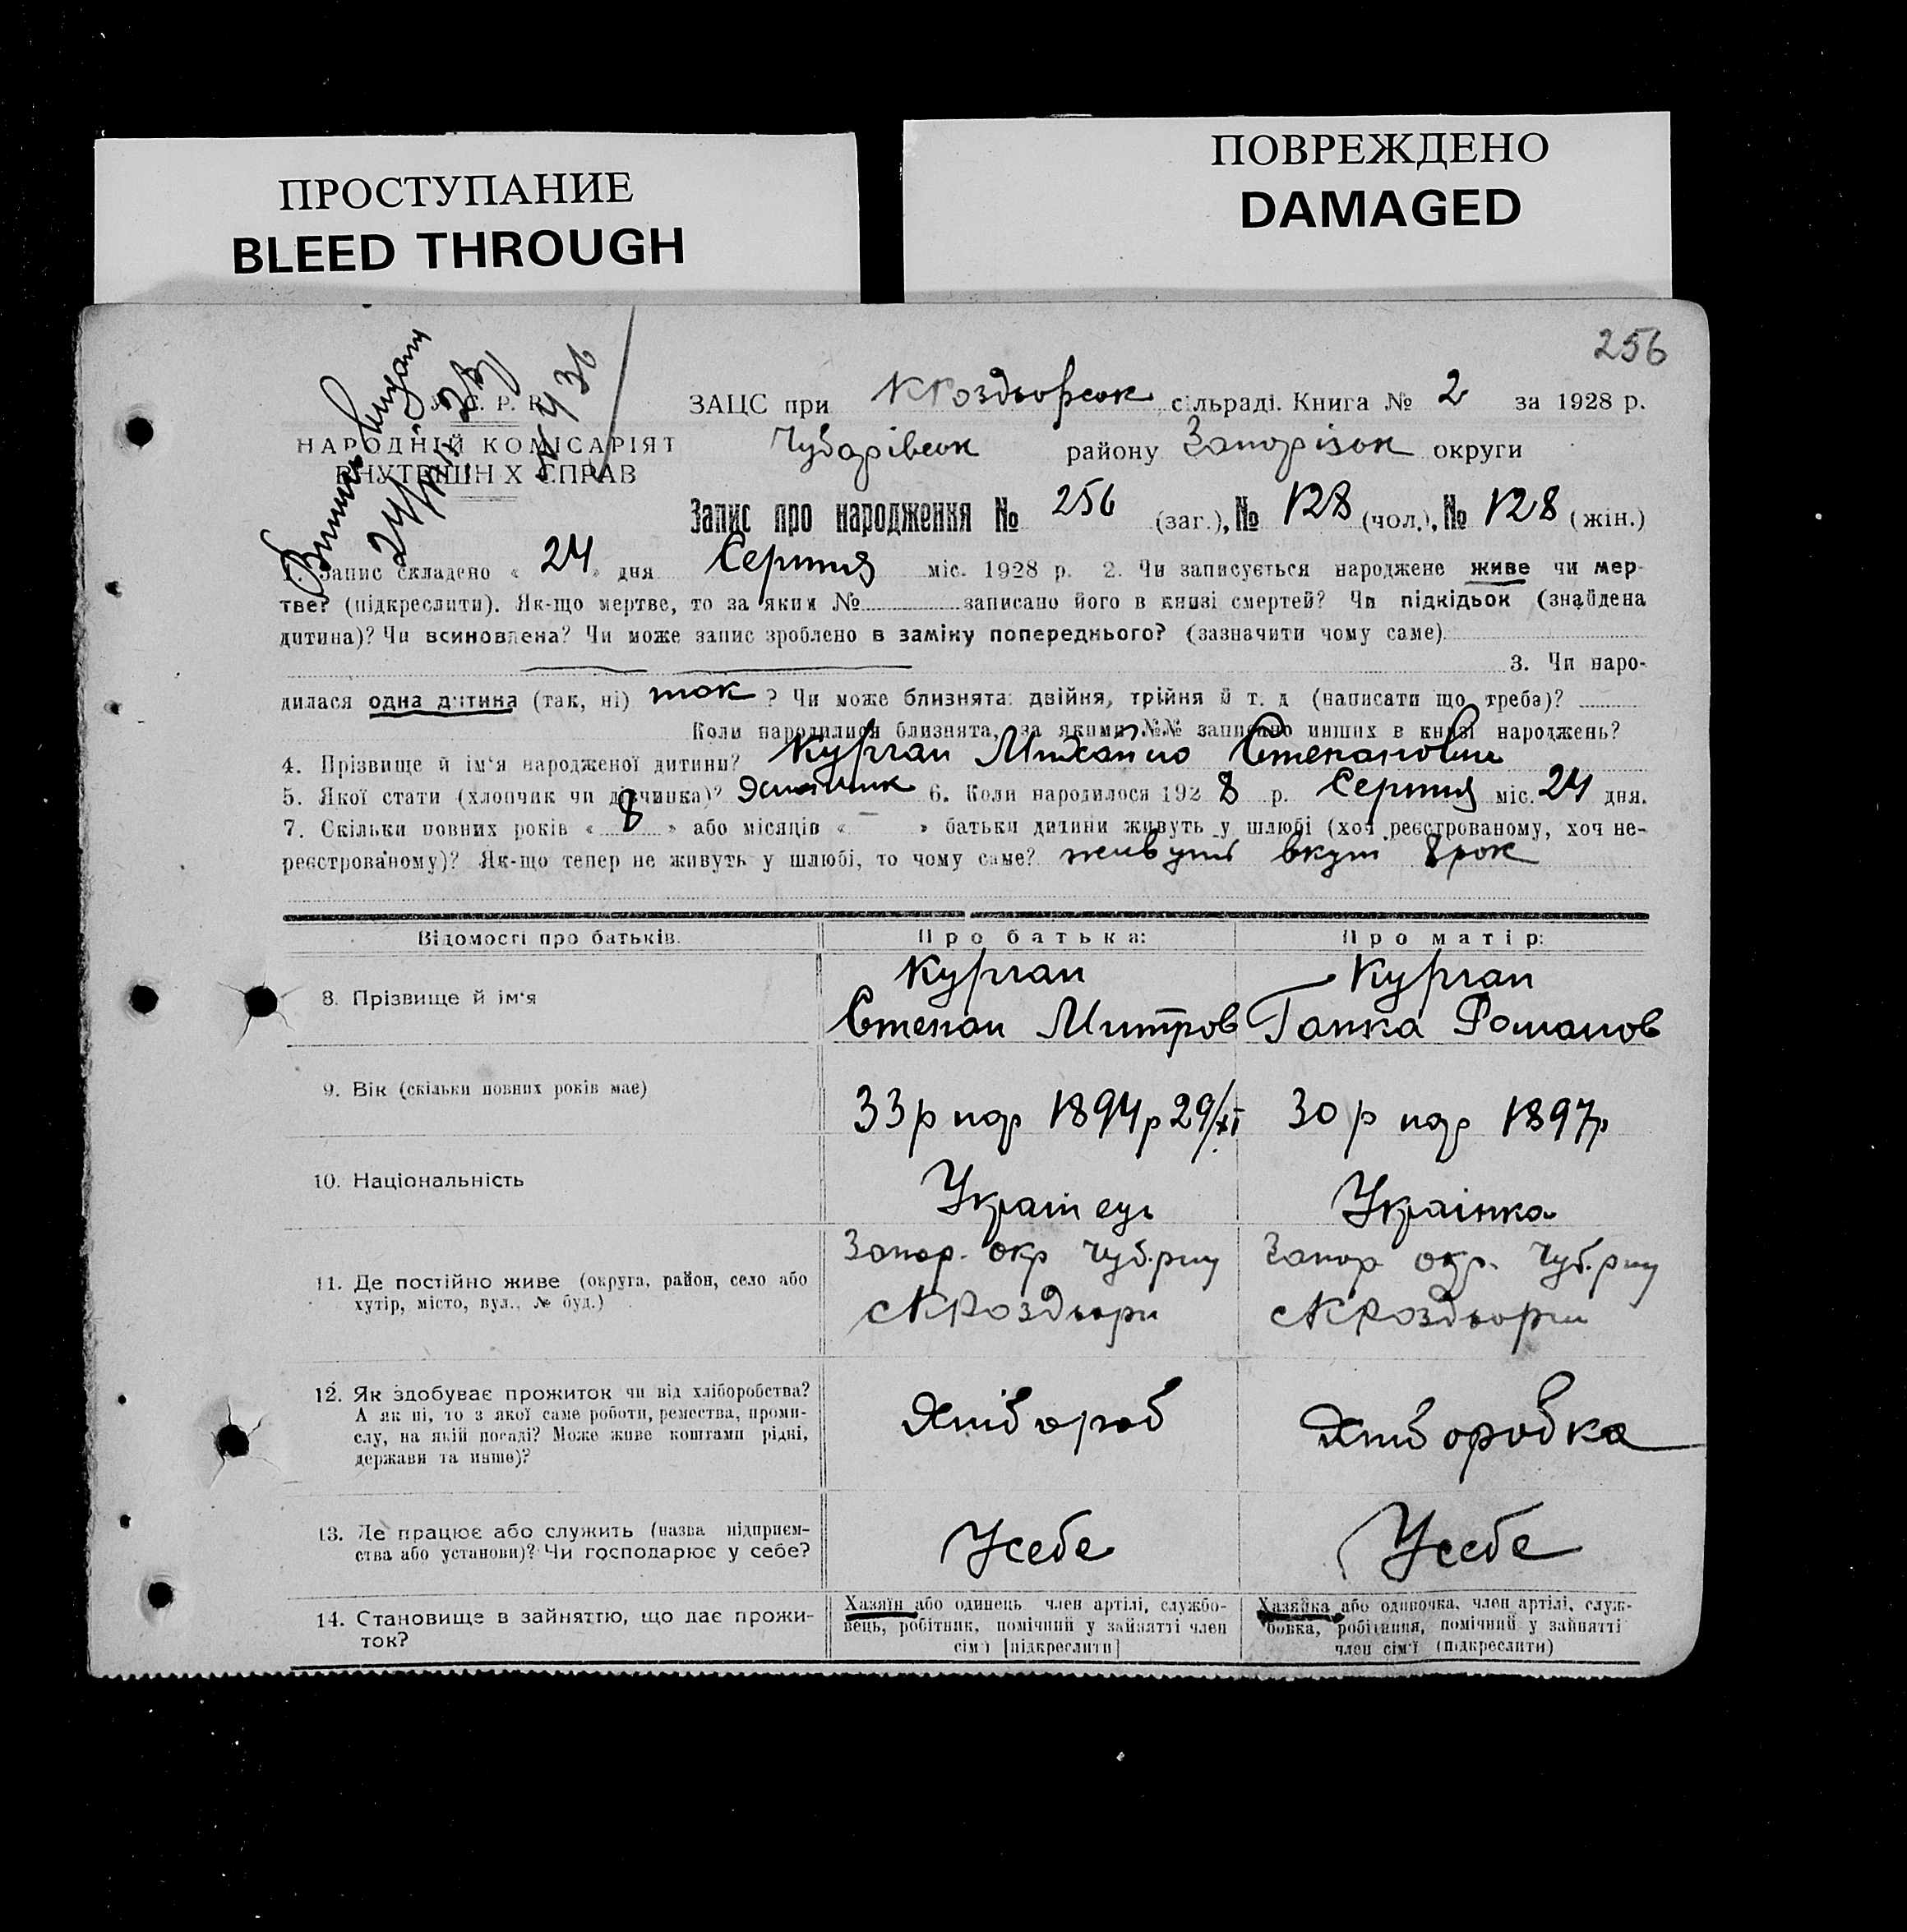 ПРОСТУПАНИЕ
BLEED THROUGH
ПОВРЕЖДЕНО
DAMAGED
256
ЗАЦС при КРоздьорсок сільраді. Книга № 2 за 1928 р.
НАРОДНІЙ КОМІСАРІЯТ
ВНУТРІШНІХ СПРАВ
Чубарівсок району Запорізок округи
Запис про народження № 256 (заг.), № 128 (чол.), № 128 (жін.)
1. Запис складено « 24 » дня Серпня міс. 1928 р. 2. Чи записується народжене живе чи мер-
тве? (підкреслити). Як-що мертве, то за яким № записано його в книзі смертей? Чи підкідьок (знайдена
дитина)? Чи всиновлена? Чи може запис зроблено в заміну попереднього? (зазначити чому саме)
3. Чи наро-
дилася одна дитина (так, ні) так ? Чи може близнята: двійня, трійня й т. д (написати що треба)?
Коли народилися близнята, за якими №№ записано инших в книзі народжень?
4. Прізвище й ім'я народженої дитини? Курган Михайло Степанович
5. Якої стати (хлопчик чи дівчинка)? Хлопчик 6. Коли народилося 1928 р. Серпня міс. 24 дня.
7. Скільки повних років « 8 » або місяців « – » батьки дитини живуть у шлюбі (хоч реєстрованому, хоч не-
реєстрованому)? Як-що тепер не живуть у шлюбі, то чому саме? живуть вкуп 8 рок
Відомості про батьків. Про батька: Про матір:
8. Прізвище й ім'я
Курган
Степан Митров
Курган
Ганка Романов
9. Вік (скільки повних років має)
33 р нар 1894 р 29/XI
30 р нар 1897 р
10. Національність
Украінець
Украінка
11. Де постійно живе (округа, район, село або
хутір, місто, вул., № буд.)
Запор. окр Чуб. рну
с КРоздьори
Запор окр. Чуб. рну
с КРоздьори
12. Як здобуває прожиток чи від хліборобства?
А як ні, то з якої саме роботи, ремества, проми-
слу, на якій посаді? Може живе коштами рідні,
держави та инше)?
Хлібороб
Хліборобка
13. Де працює або служить (назва підприєм-
ства або установи)? Чи господарює у себе?
Усебе
Усебе
14. Становище в зайняттю, що дає прожи-
ток?
Хазяїн або одинець член артілі, службо-
вець, робітник, помічний у зайнятті член
сім'ї [підкреслити]
Хазяйка або одиночка, член артілі, служ-
бовка, робітниця, помічний у зайнятті
член сім'ї (підкреслити)